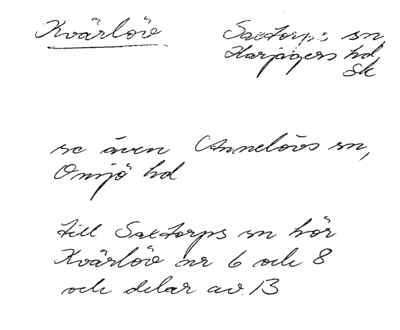 Kvärlöv
Saxtorps sn,
Harjagers hd
Sk
se även Annelövs sn,
Onsjö hd
till Saxtorps sn hör
Kvärlöv nr 6 och 8
och delar av 13